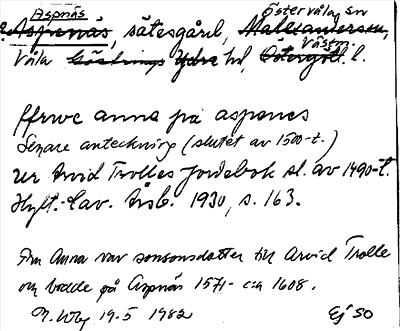 Aspnäs Östervåla sn
Aspenäs, sätesgård, Malexanders sn,
Västm.
Våla Göstrings Ydre hd, Östergötl. l.
ffrwe anna på aspenes
Senare anteckning (slutet av 1500-t.)
ur Arvid Trolles jordebok sl. av 1490-t.
Hylt.-Cav. Årsb. 1930, s. 163.
Fru Anna var sonsonsdotter till Arvid Trolle
och bodde på Aspnäs 1571- c:a 1608.
19.5 1982 Ej SO